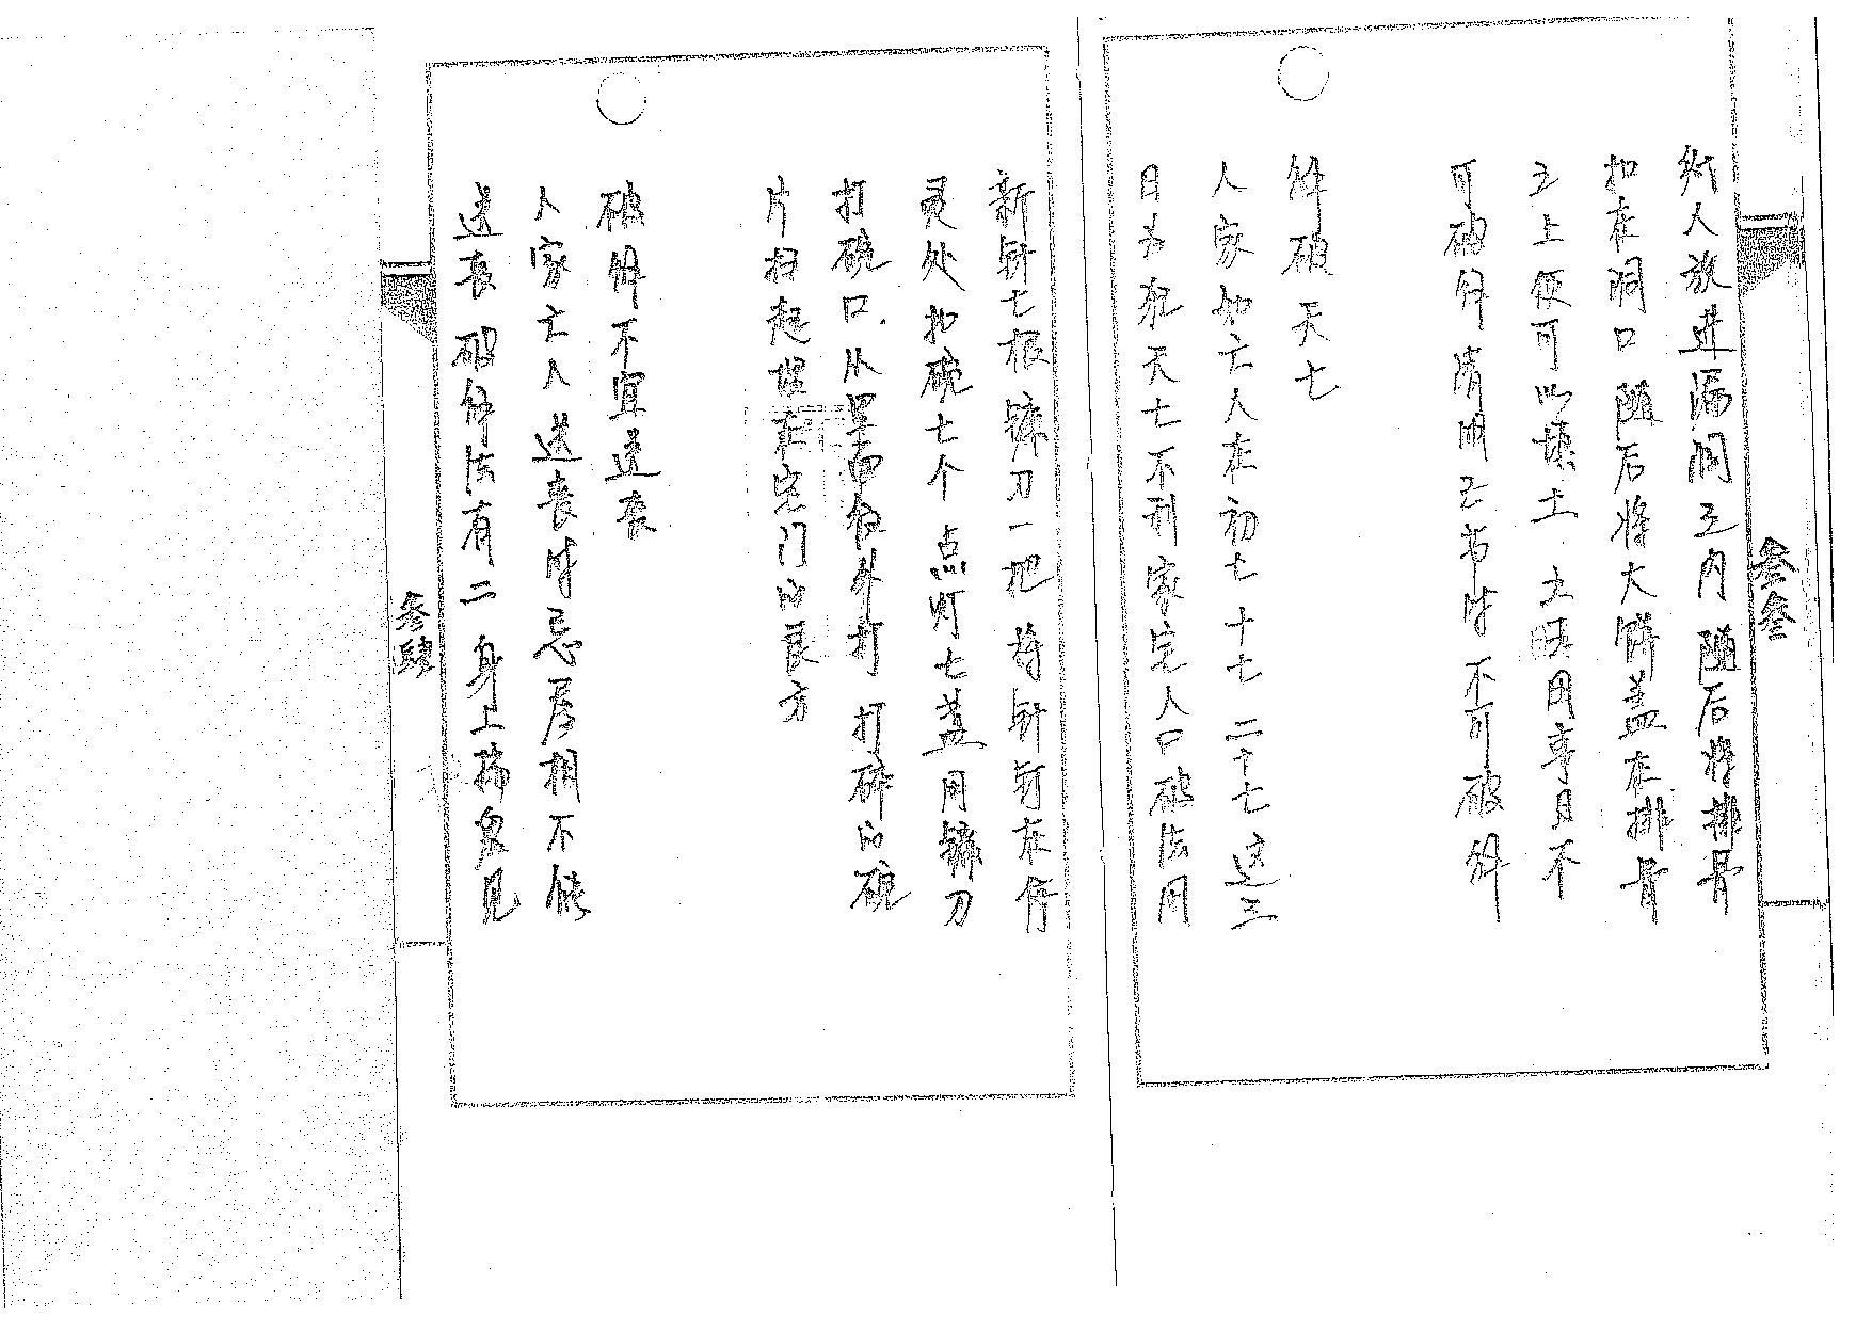 人放进漏洞之内随后将排骨
扣在洞口随后将大饼盖在排骨
之上便可以填土 土旺用事月不
可破解清明之节时不可破解
解破天七
人家如亡人在初七十七二十七这三
日为犯天七不利家宅人口破法用
叁叁
新针七根镰刀一把将针钉在停
灵处扣碗七个点灯七盏用镰刀
打碗口从里面往外打打碎的碗
片扫起埋在宅门的艮方
破解不宜送丧
人家亡人送丧时忌居相不能
送丧破解法有二身上揣
叁肆